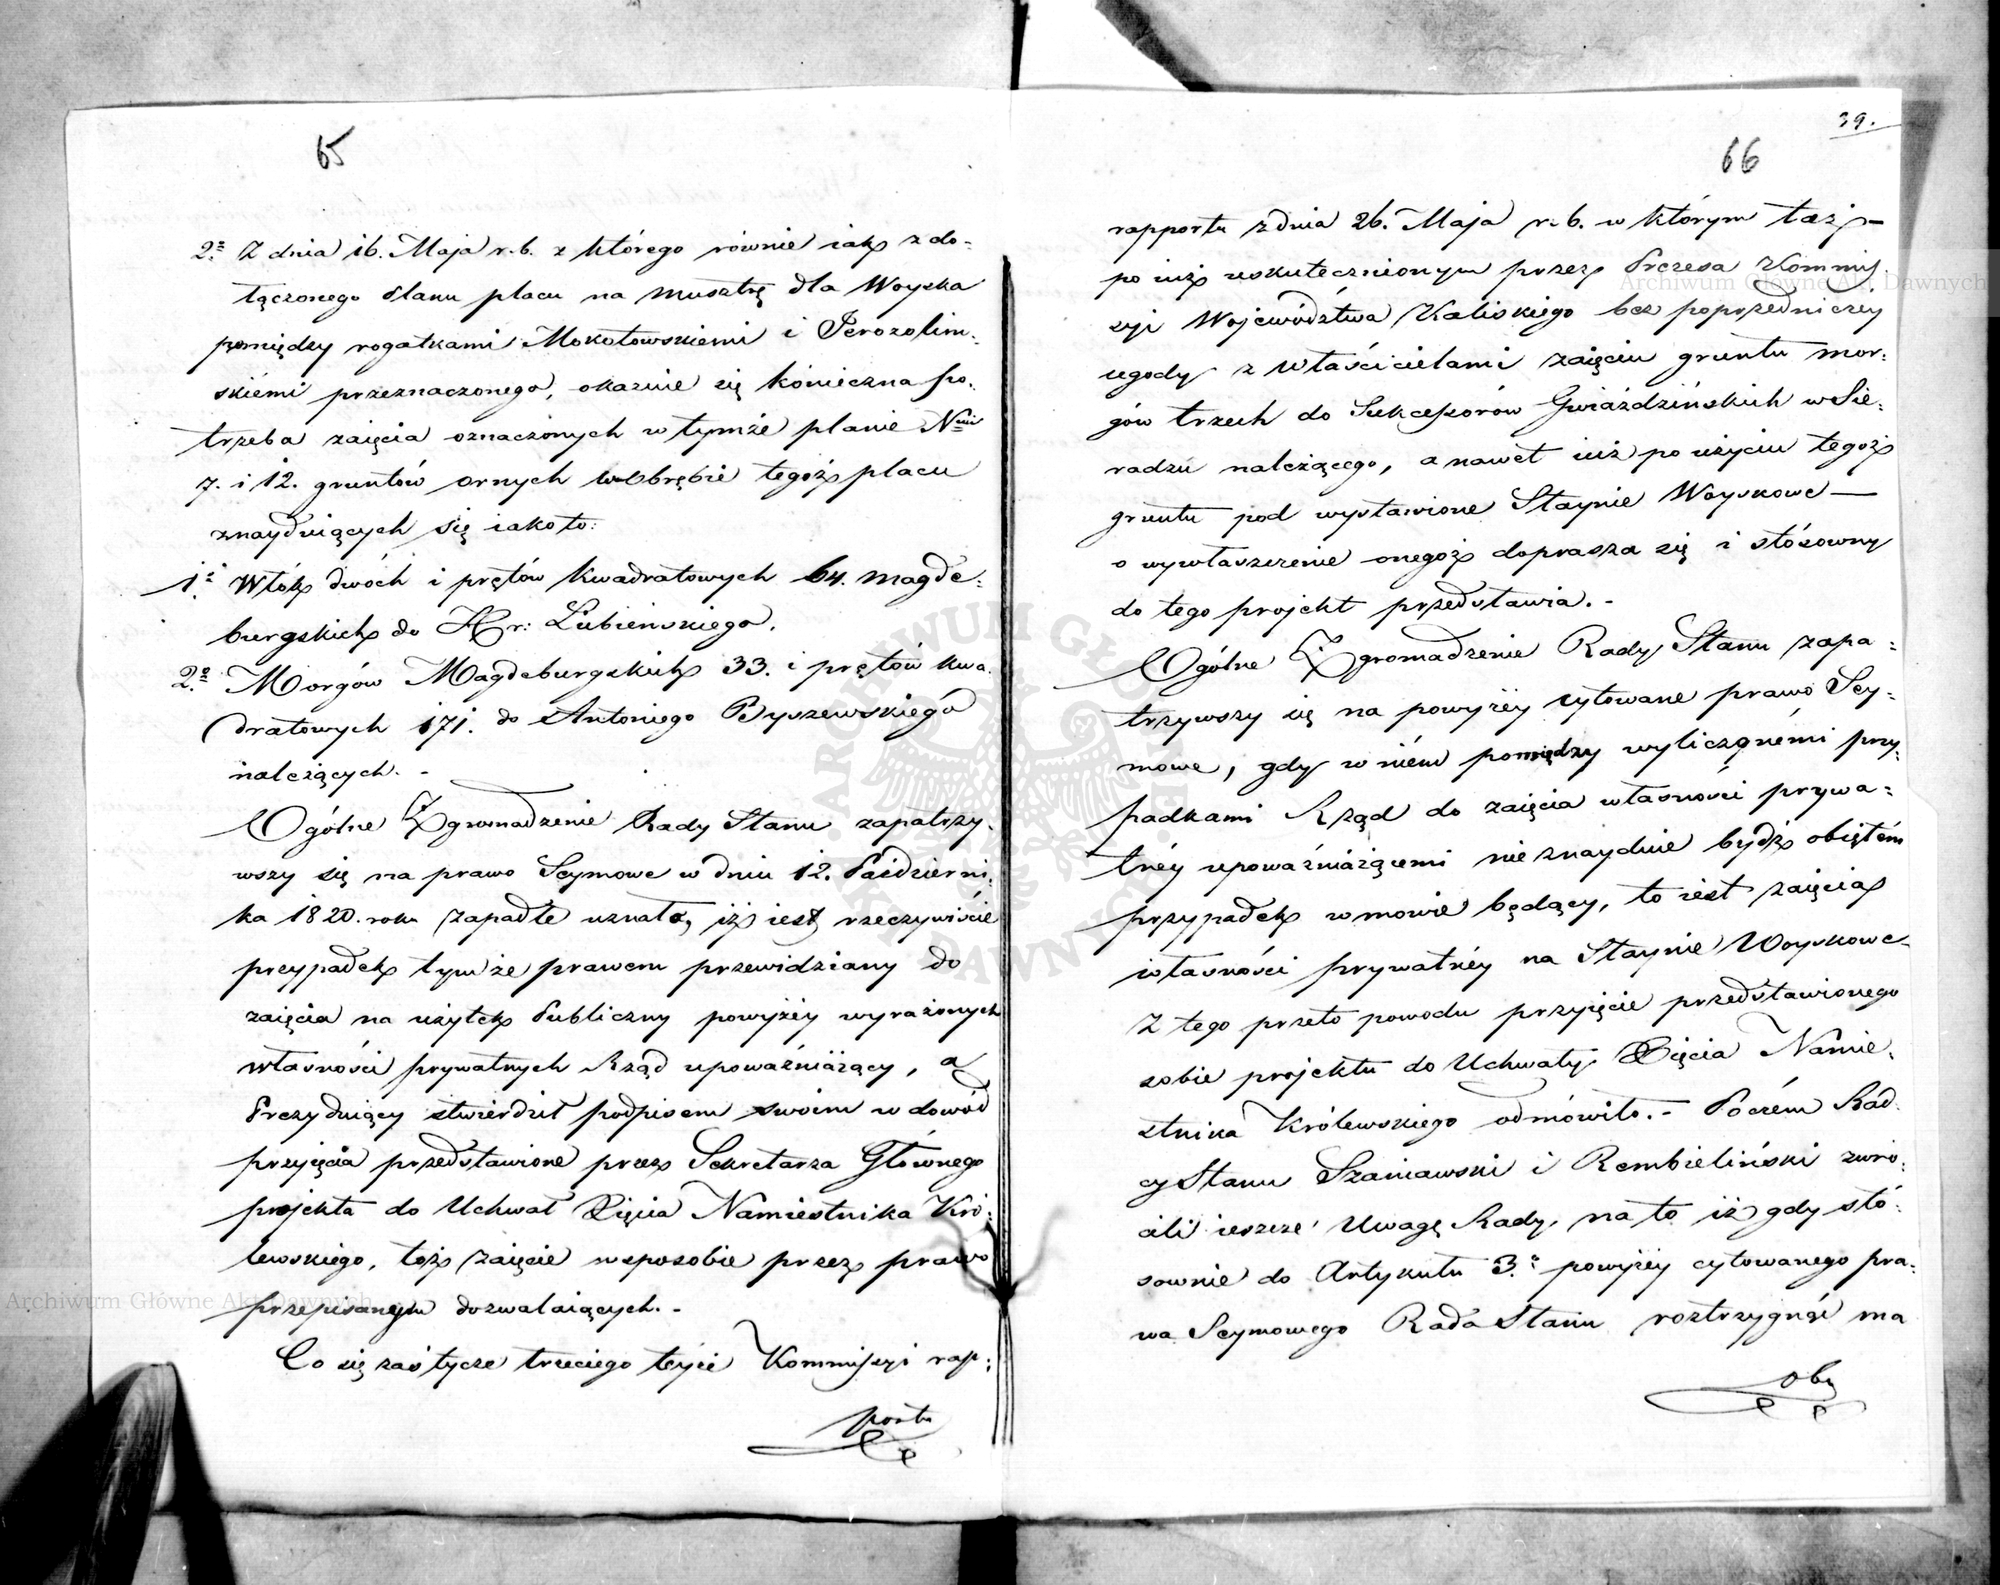 65
2º Z dnia 16. Maja r. b. z którego równie iak z do-
łączonego Planu placu na musztrę dla Woyska
pomiędzy rogatkami Mokotowskiemi i Jerozolim-
skiémi przeznaczonego, okazuie się konieczna po-
trzeba zaięcia oznaczonych w tymże planie Nrem
7. i 12. gruntów ornych w obrębie tegoż placu
znayduiących się iako to:
1º Włók dwóch i prętów kwadratowych 64. magde-
burgskich do Hr: Łubieńskiego.
2º Morgów Magdeburgskich 33. i prętów kwa-
dratowych 171. do Antoniego Byszewskiego
należących. -
Ogólne Zgromadzenie Rady Stanu zapatrzy-
wszy się na prawo Seymowe w dniu 12. Październi-
ka 1820. roku zapadłe uznało, iż iest rzeczywiście
przypadek tymże prawem przewidziany do
zaięcia na użytek Publiczny powyżéy wyrażonych
własności prywatnych Rząd upoważniaiący, a
Prezyduiący stwierdził podpisem swoim w dowód
przyięcia przedstawione przez Sekretarza Głównego
projekta do Uchwał Xięcia Namiestnika Kró-
lewskiego, toż zaięcie w sposobie przez prawo
przepisanym dozwalaiących. -
Co się zaś tycze trzeciego teyże Kommissyi rap-
portu
39.
66
rapportu z dnia 26. Maja r. b. w którym taż -
po iuż uskutecznionym przez Prezesa Kommis-
syi Województwa Kaliskiego bez poprzedniczéy
ugody z właścicielami zaięciu gruntu mor-
gów trzech do Sukcessorów Gwiaździńskich w Sie-
radzu należącego, a nawet iuż po użyciu tegoż
gruntu pod wystawione Staynie Woyskowe —
o wywłaszczenie onegoż doprasza się i stósowny
do tego projekt przedstawia. -
Ogólne Zgromadzenie Rady Stanu zapa-
trzywszy się na powyżéy cytowane prawo Sey-
mowe, gdy w niém pomiędzy wyliczonémi przy-
padkami Rząd do zaięcia własności prywa-
tnéy upoważniaiącemi nie znayduie bydź obiętém
przypadek w mowie będący, to iest zaięcia
własności prywatnéy na Staynie Woyskowe
z tego przeto powodu przyięcie przedstawionego
sobie projektu do Uchwały Xięcia Namie-
stnika Królewskiego odmówiło. - Poczém Rad-
cy Stanu Szaniawski i Rembieliński zwró-
cili ieszcze Uwagę Rady, na to iż gdy stó-
sownie do Artykułu 3.º powyżéy cytowanego pra-
wa Seymowego Rada Stanu roztrzygnąć ma
oby
Archiwum Główne Akt Dawnych
Archiwum Główne Akt Dawnych
ARCHIWUM GŁÓWNE AKT DAWNYCH